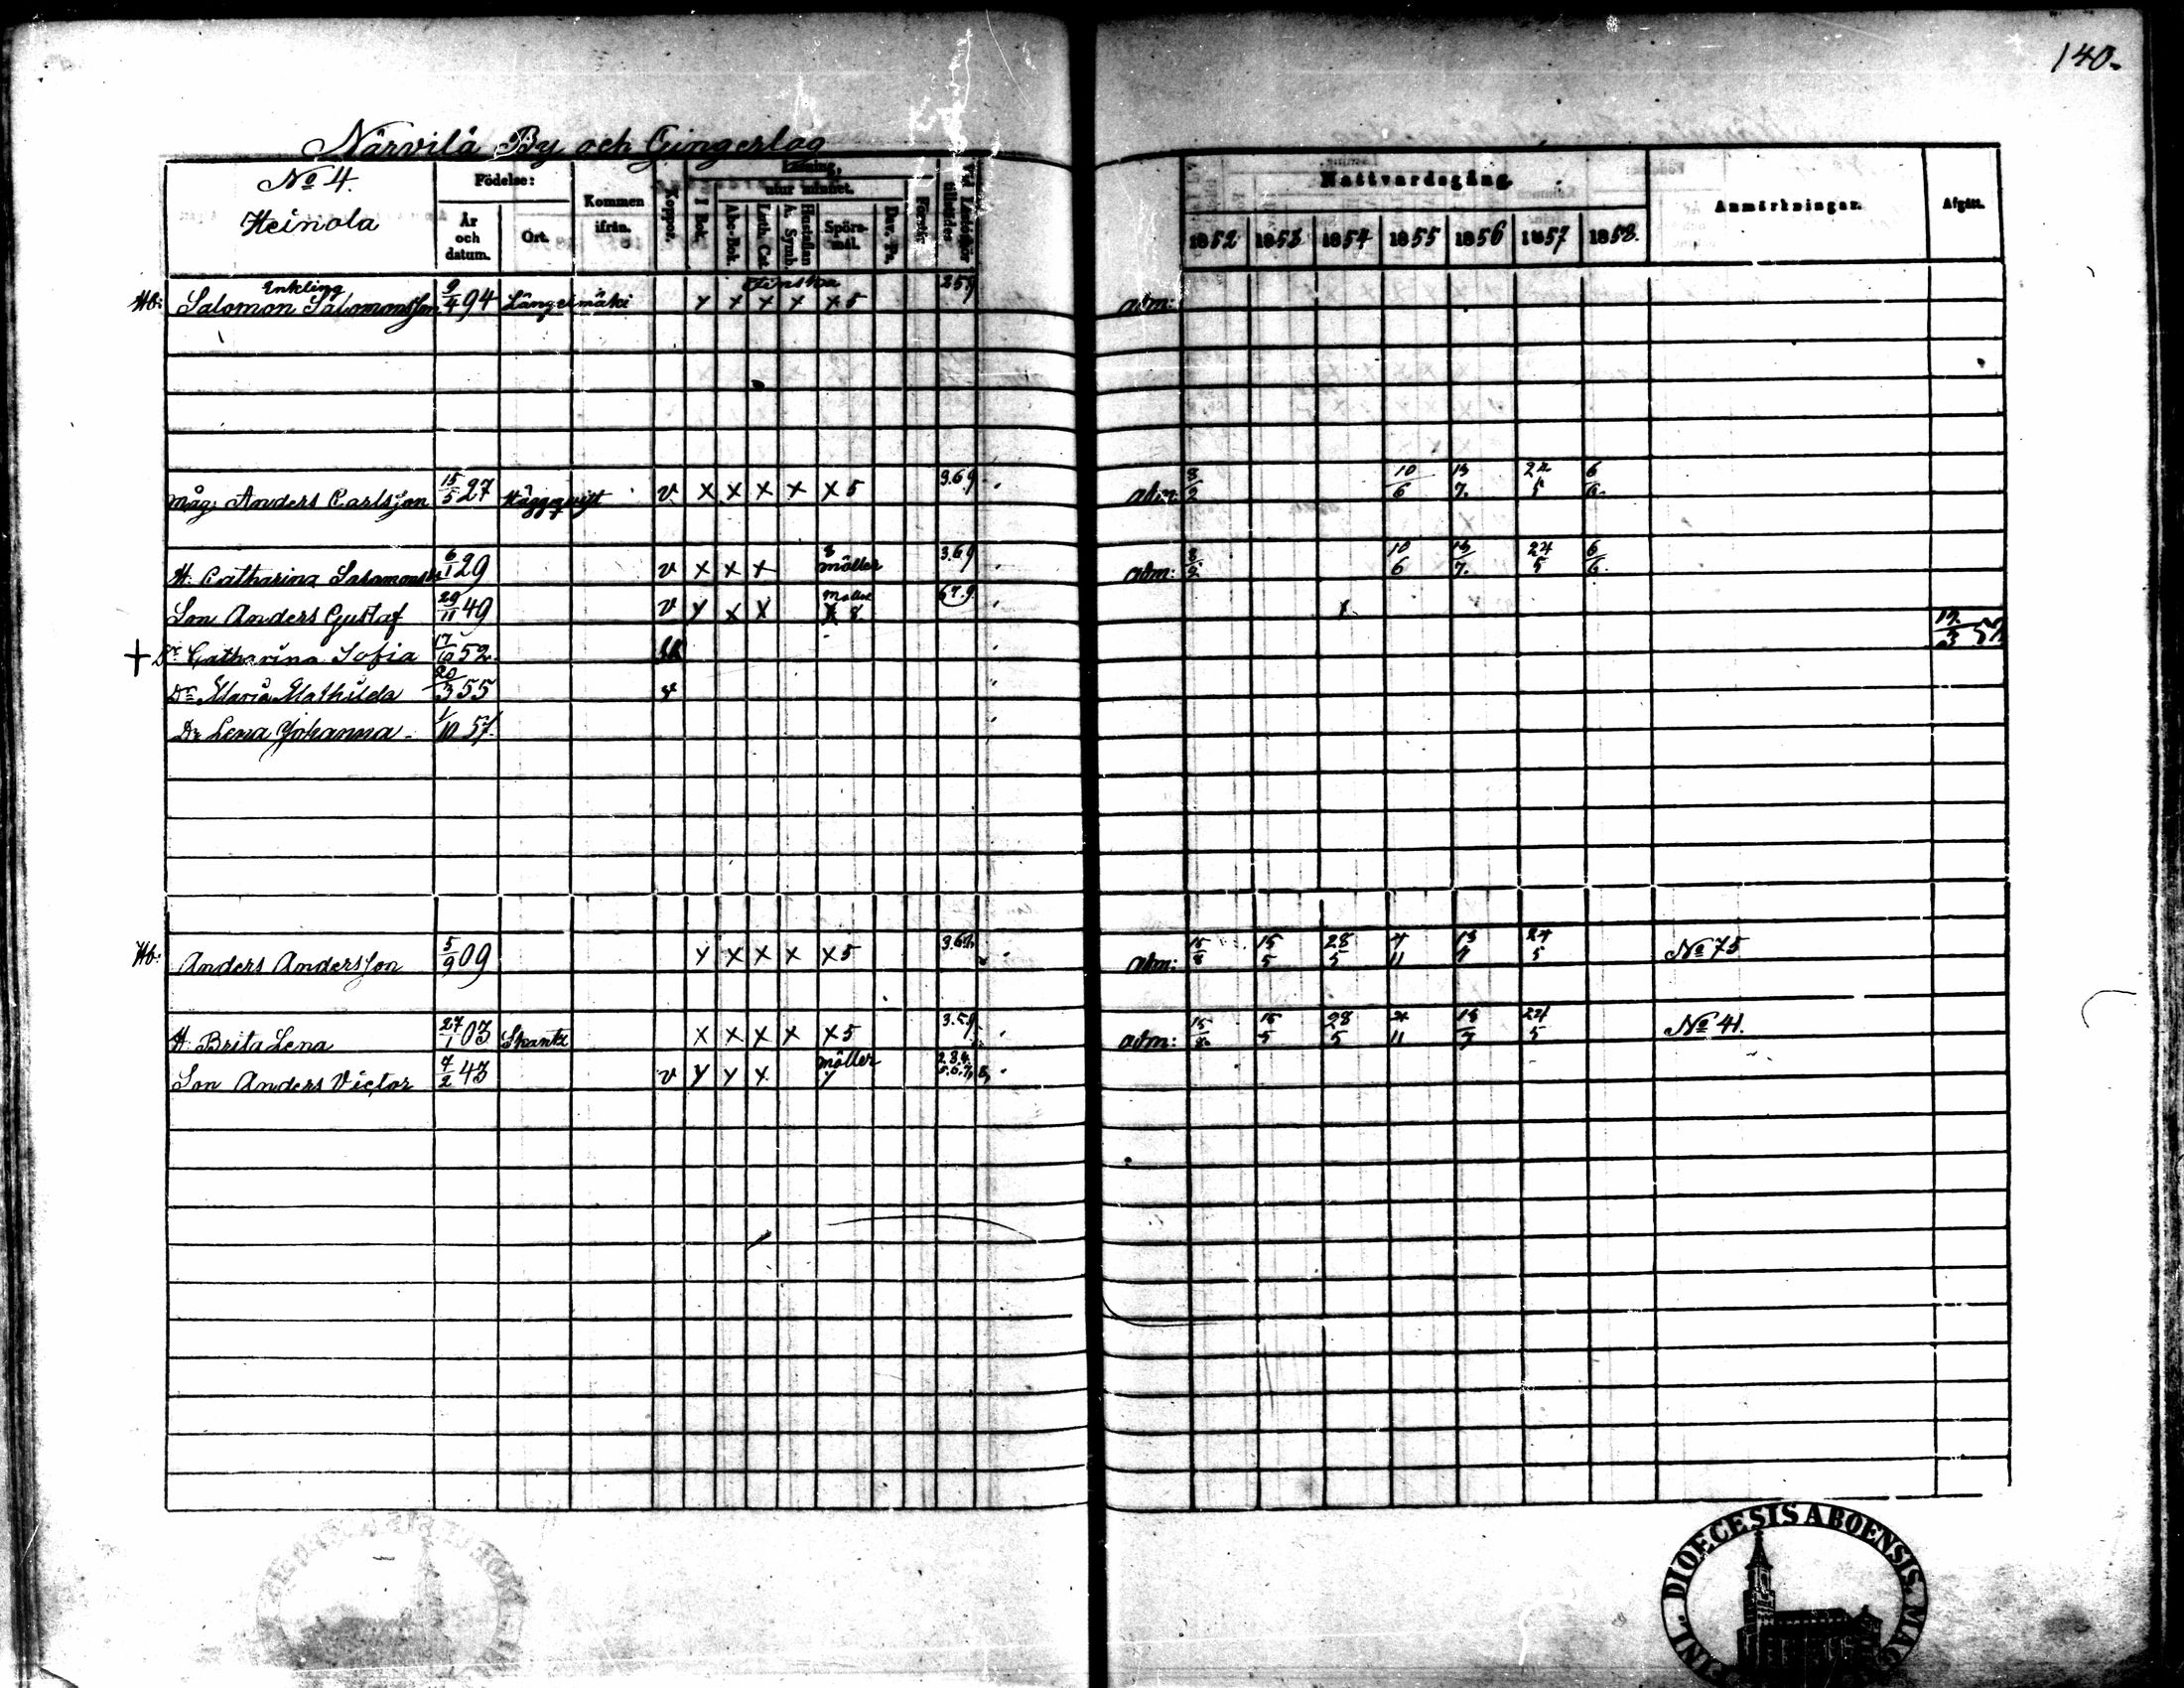 140.
Närvilä By och Gingerlag
No 4.
Heinola
Födelse:
År och datum.
Ort.
Kommen ifrån.
Koppor.
Läsning,
I Bok.
utur minnet.
Abc-Bok.
Luth. Cat.
Hustaflan A. Symb.
Spörsmål.
Dav. Ps.
Förstår
Vid Läseförhör tillstädes
Nattvardsgång.
1852 1853 1854 1855 1856 1857 1858.
Anmärkningar.
Afgått.
Enkling Finska
Hb: Salomon Salomonsson 9/4 94 Längelmäki x x x x x 5 259 adm:
Måg Anders Carlsson 15/5 27 v x x x x x 5 3.6 9 adm: 8/2 10/6 13/7. 24/5 6/6.
H. Catharina 6/1 29 v x x x 8 möller 3.6 9 adm: 8/2 10/6 13/7. 24/5 6/6.
Son Anders Gustaf 29/11 49 v y x x 8 x
+ Dr Catharina Sofia 17/10 52
Dr Maria Mathilda 20/3 55
Dr Lena Johanna 1/10 57
Hb: Anders Andersson 5/9 09 y x x x x 5 adm: 15/8 15/5 28/5 4/11 13/7 24/5 No 75
H. Brita Lena 27/1 03 x x x x x 5 3.5.9 adm: 15/8 15/5 28/5 4/11 13/7 24/5 No 41.
Son Anders Victor 7/2 43 v y y x möller y 2.3.4. 5.6.7, 8,
FINL. DIOECESIS ABOENSIS. MAG